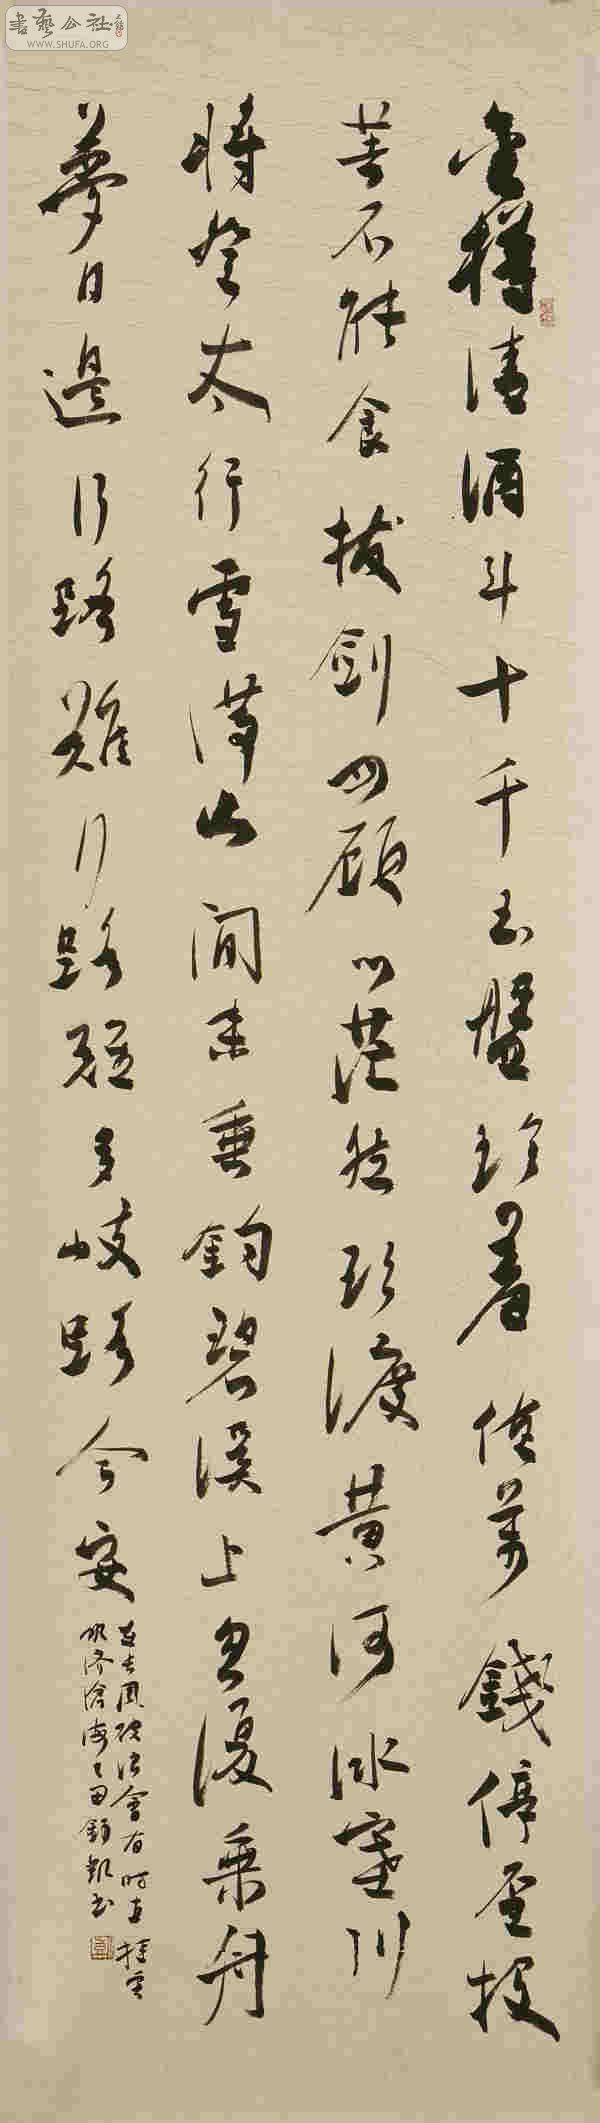 書藝公社
WWW.SHUFA.ORG
金樽清酒斗十千玉盤珍羞值萬錢停盃投
箸不能食拔劍四顧心茫然欲渡黄河冰塞川
將登太行雪滿山閒來垂釣碧溪上忽復乘舟
夢日邊行路難行路難多岐路今安
在長風破浪會有時直挂雲
帆濟滄海
書